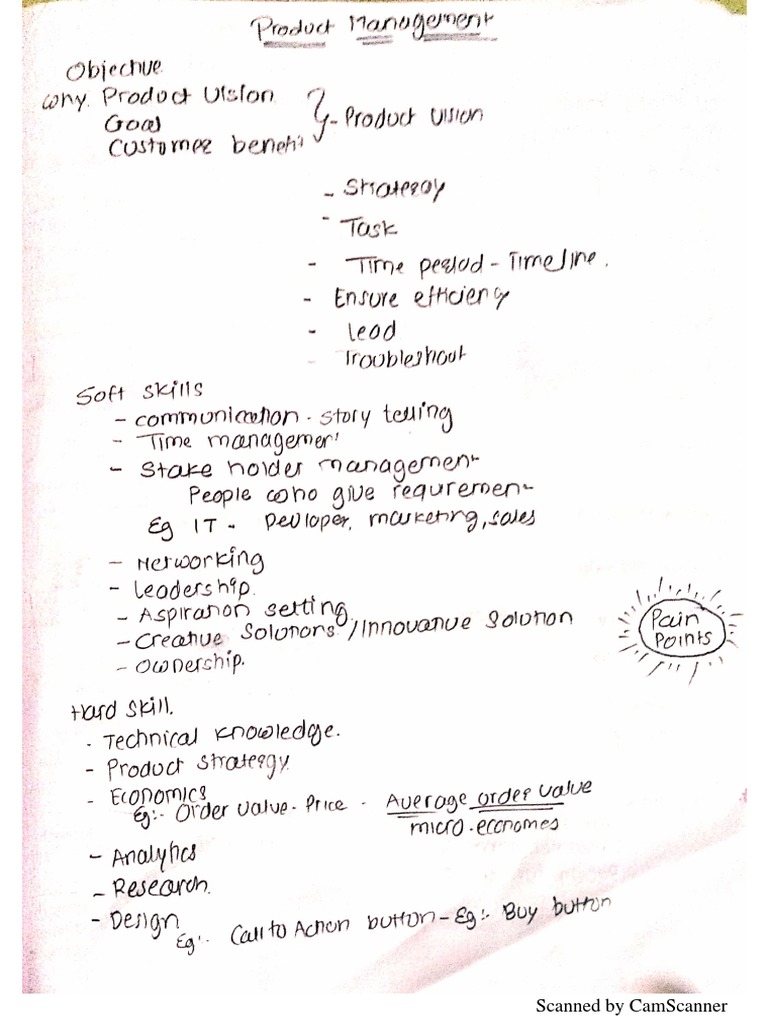 Product Management
Objective
Why. Product Vision
Goal
Customer benefi
- Product Vision
- Strategy
- Task
- Time period - Timeline.
- Ensure efficiency
- Lead
- Troubleshout
Soft skills
- communication - story telling
- Time managemen
- Stake holder management
People who give requrement
Eg IT - Devloper, marketing, sales
- Networking
- Leadership.
- Aspiration setting
- Creative Solutions / Innovative Solution
- Ownership.
Pain
Points
Hard skill.
- Technical knowledge.
- Product strategy
- Economics
Eg:- Order value - Price - Average order value
micro-economes
- Analytics
- Research.
- Design
Eg:- Call to Action button - Eg:- Buy button
Scanned by CamScanner